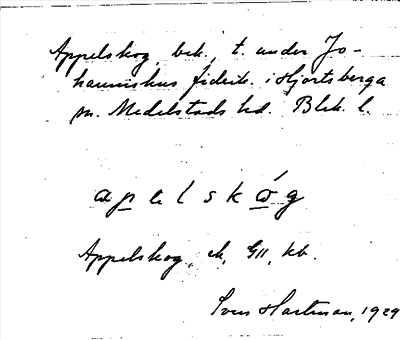 Appelskog, bek. t. under Jo-
hannishus fideik. i Hjortsberga
sn. Medelstads hd. Blek. l.
apelskóg
Appelskog, ek, GII, kb.
Sven Hartman, 1929